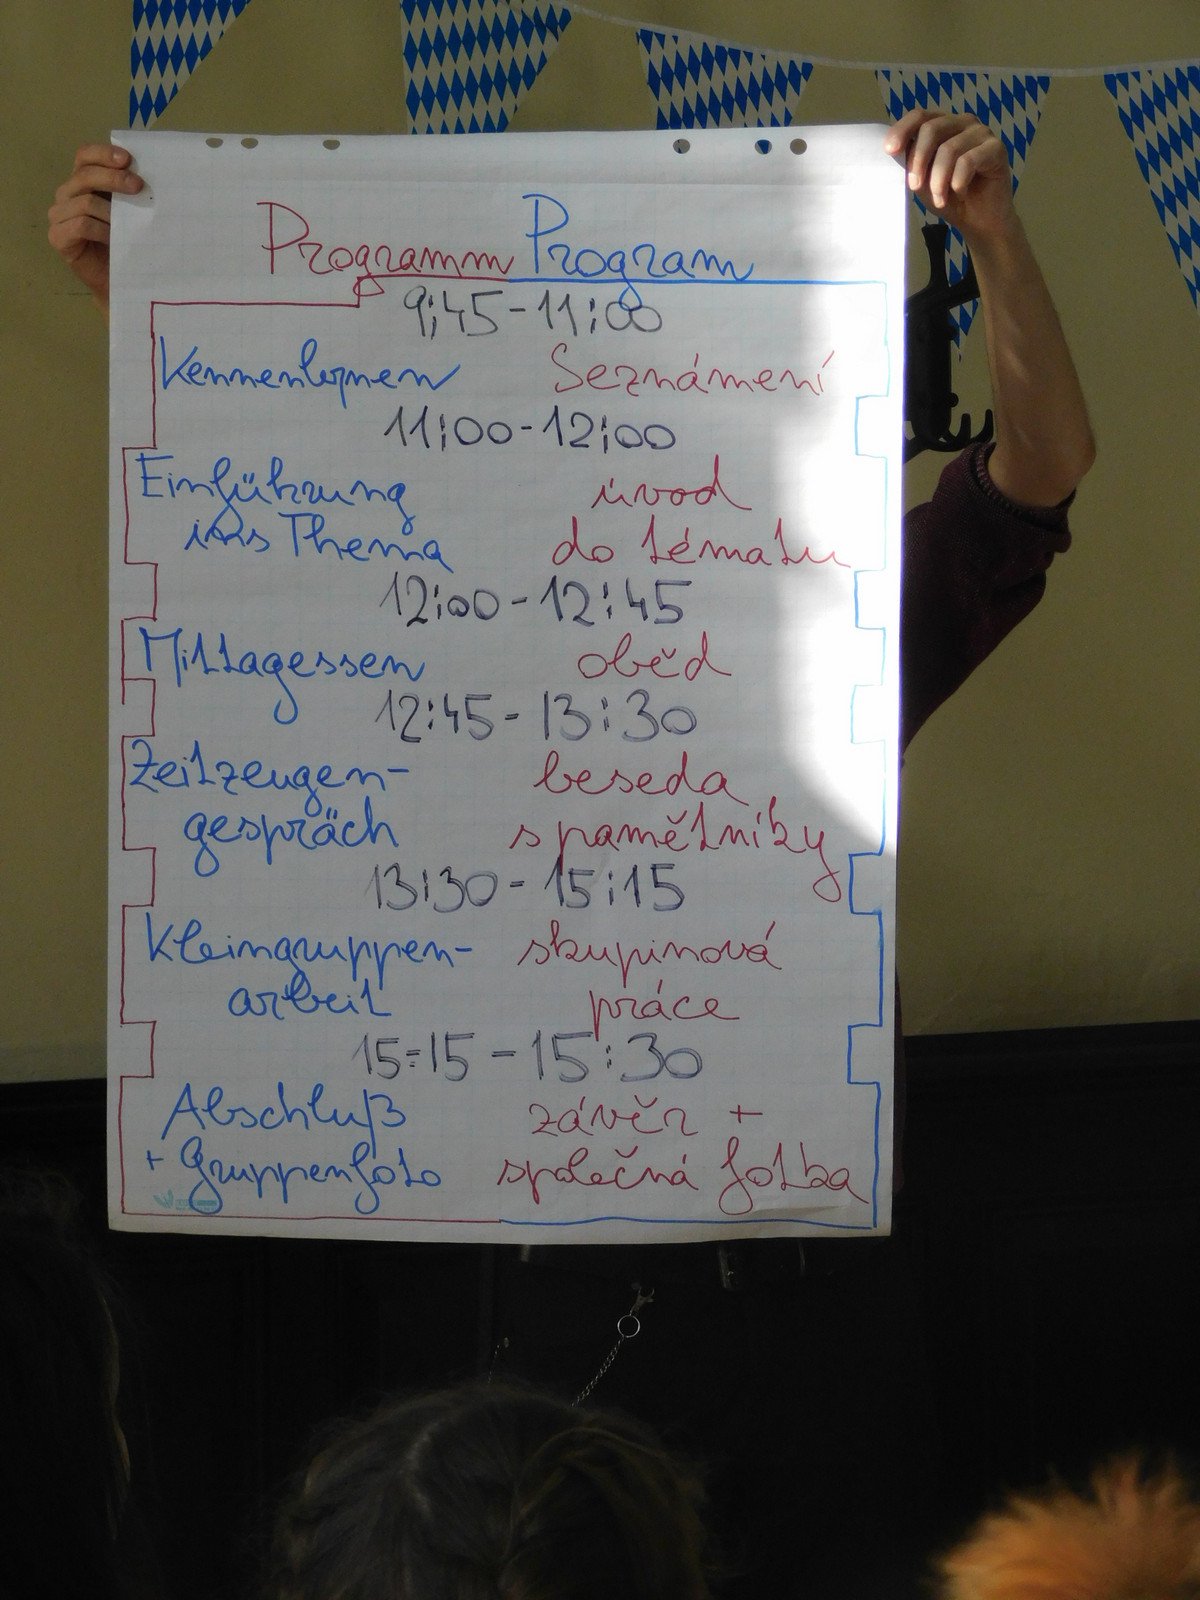 Programm Program
9:45-11:00
Kennenlernen Seznámení
11:00-12:00
Einführung úvod
ins Thema do tématu
12:00-12:45
Mittagessen oběd
12:45-13:30
Zeitzeugen- beseda
gespräch s pamětníky
13:30-15:15
Kleingruppen- skupinová
arbeit práce
15:15-15:30
Abschluß závěr +
+ Gruppenfoto společná fotka